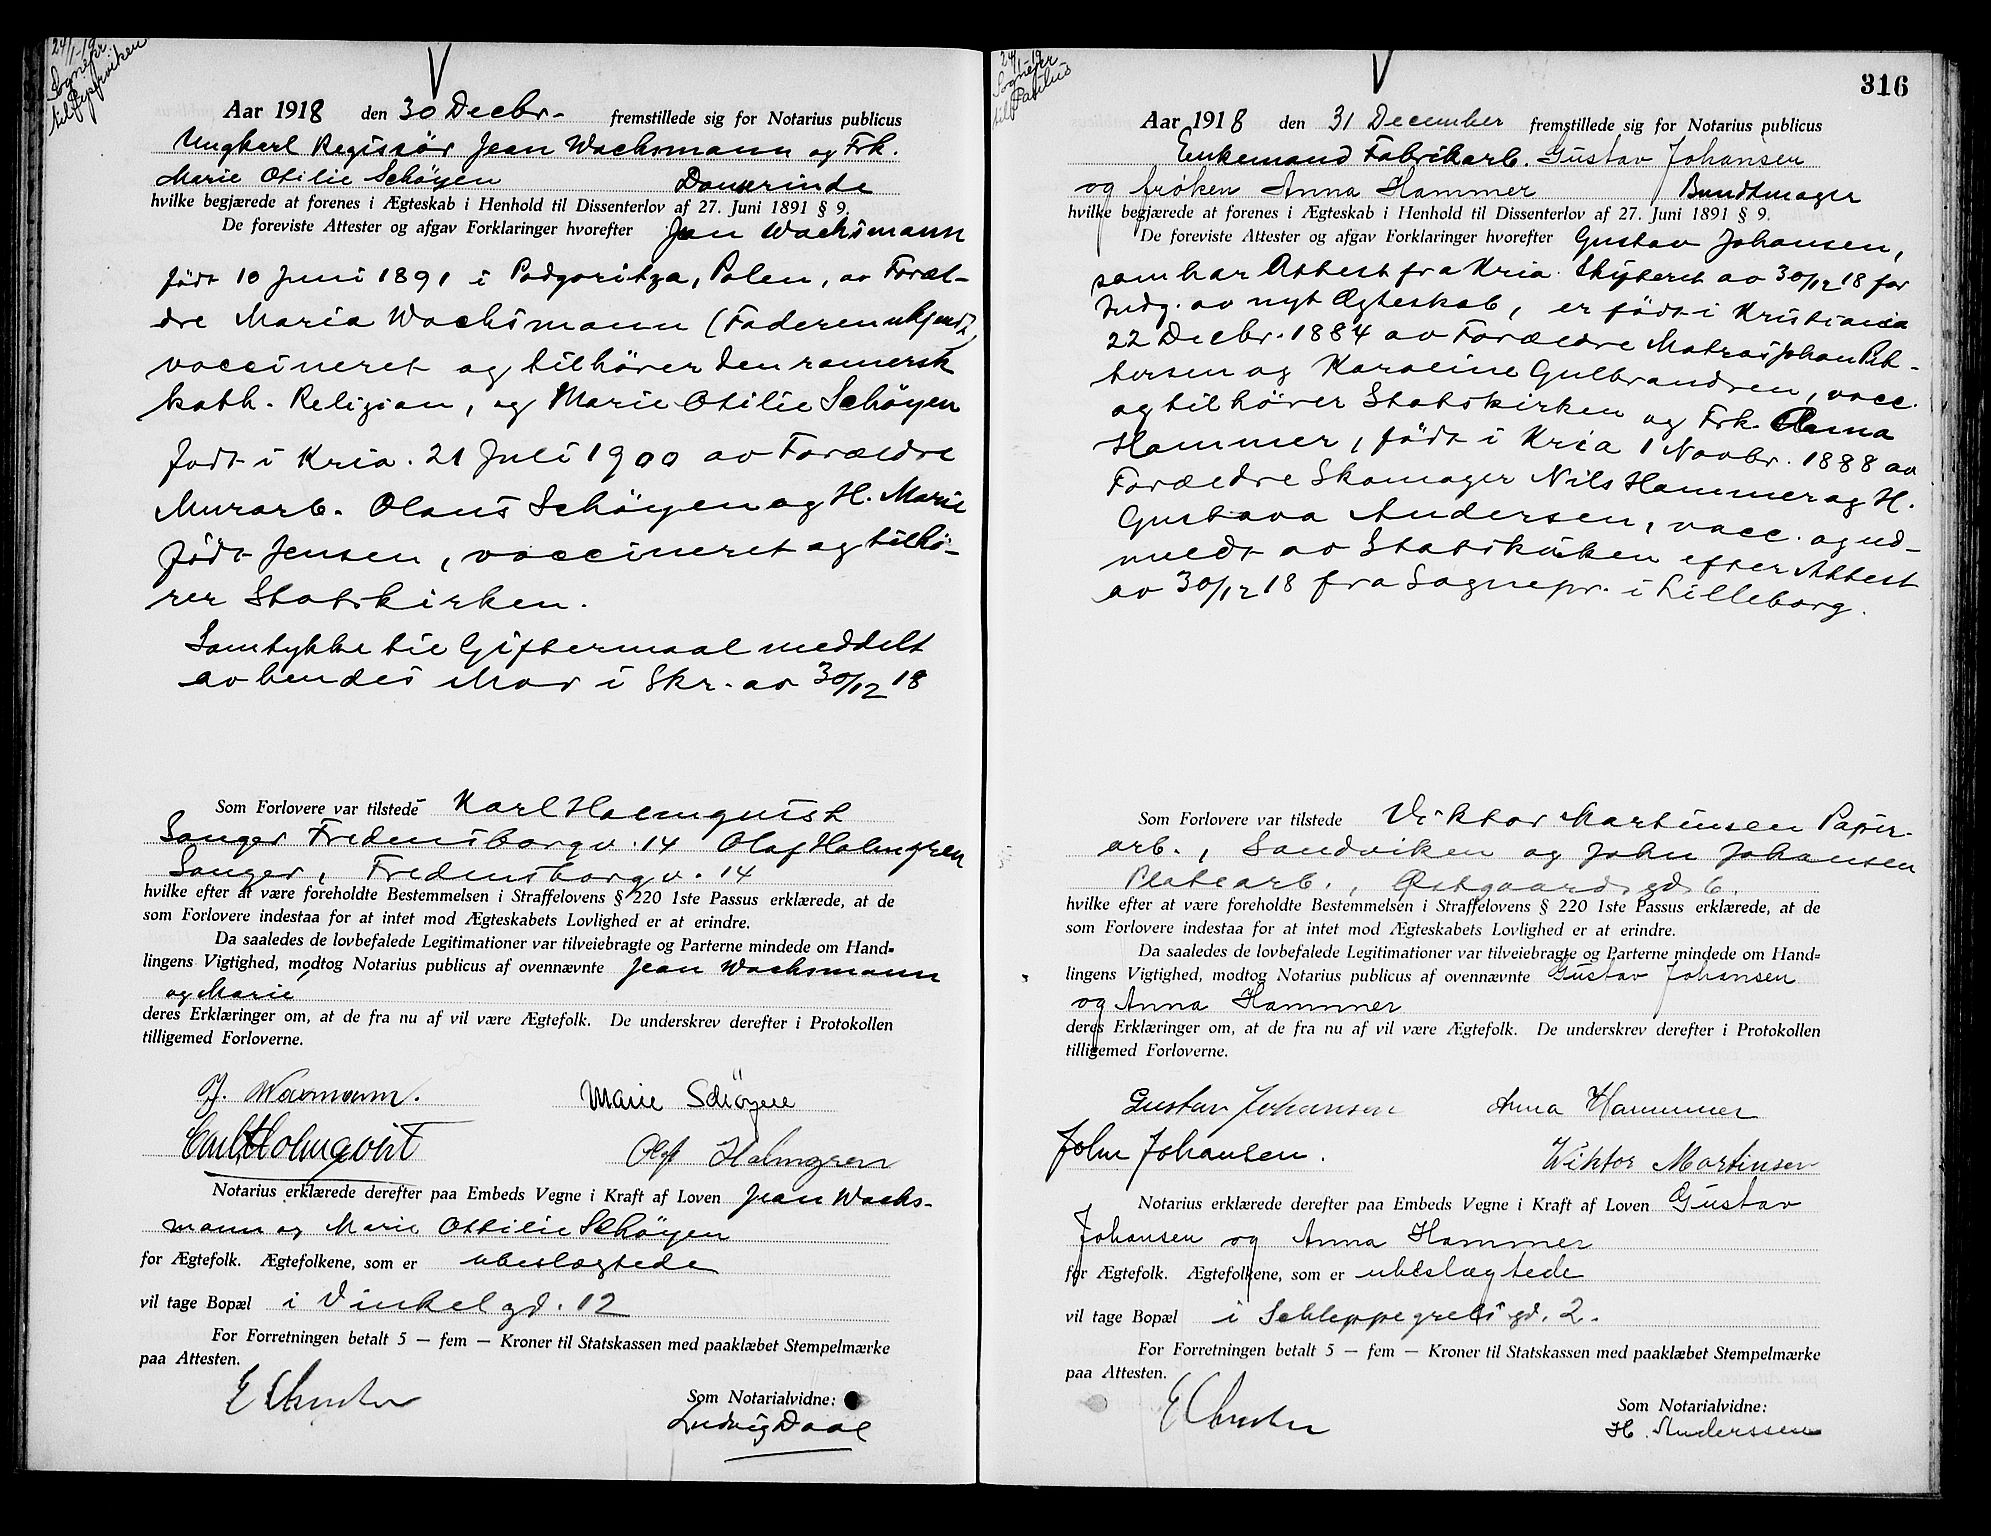 24/1-19
Sognepr.
til Piperviken
Aar 1918 den 30 Decbr. fremstillede sig for Notarius publicus
Ungkarl Regissør Jean Wachsmann og Frk.
Marie Otilie Schøyen Danserinde
hvilke begjærede at forenes i Ægteskab i Henhold til Dissenterlov af 27. Juni 1891 § 9.
De foreviste Attester og afgav Forklaringer hvorefter Jean Wachsmann
født 10 Juni 1891 i Podgoritza, Polen, av Foræl-
dre Maria Wachsmann (Faderen ukjendt)
vaccineret og tilhører den romersk
kath. Religion, og Marie Otilie Schøyen
født i Kria. 21 Juli 1900 av Forældre
Murarb. Olaus Schøyen og H. Marie
født Jensen, vaccineret og tilhø-
rer Statskirken.
Samtykke til Giftermaal meddelt
av hendes Mor i Skr. av 30/12 18
Som Forlovere var tilstede Karl Holmquist
Sanger Fredensborgv. 14 Olaf Holmgren
Sanger, Fredensborgv. 14
hvilke efter at være foreholdte Bestemmelsen i Straffelovens § 220 1ste Passus erklærede, at de
som Forlovere indestaa for at intet mod Ægteskabets Lovlighed er at erindre.
Da saaledes de lovbefalede Legitimationer var tilveiebragte og Parterne mindede om Hand-
lingens Vigtighed, modtog Notarius publicus af ovennævnte Jean Wachsmann
og Marie
deres Erklæringer om, at de fra nu af vil være Ægtefolk. De underskrev derefter i Protokollen
tilligemed Forloverne.
J. Waxmann. Marie Schøyen
Carl Holmqvist Olof Holmgren
Notarius erklærede derefter paa Embeds Vegne i Kraft af Loven Jean Wachs-
mann og Marie Ottilie Schøyen
for Ægtefolk. Ægtefolkene, som er ubeslægtede
vil tage Bopæl i Vinkelgd. 12
For Forretningen betalt 5 — fem — Kroner til Statskassen med paaklæbet Stempelmærke
paa Attesten.
Som Notarialvidne:
Ludvig Daae
316
24/1-19
Sognepr
til Paulus
Aar 1918 den 31 December fremstillede sig for Notarius publicus
Enkemand Fabrikarb. Gustav Johansen
og frøken Anna Hammer Bundtmager
hvilke begjærede at forenes i Ægteskab i Henhold til Dissenterlov af 27. Juni 1891 § 9.
De foreviste Attester og afgav Forklaringer hvorefter Gustav Johansen,
som har Attest fra Kria. Skifteret av 30/12 18 for
Indg. av nyt Ægteskab, er født i Kristiania
22 Decbr. 1884 av Forældre Matros Johan Pet-
tersen og Karoline Gulbrandsen, vacc.
og tilhører Statskirken og Frk. Anna
Hammer, født i Kria 1 Novbr. 1888 av
Forældre Skomager Nils Hammer og H.
Gustava Andersen, vacc. og ud-
meldt av Statskirken efter Attest
av 30/12 18 fra Sognepr. i Lilleborg.
Som Forlovere var tilstede Viktor Martinsen Papir-
arb., Sandviken og John Johansen
Platearb., Østgaardsgd. 6.
hvilke efter at være foreholdte Bestemmelsen i Straffelovens § 220 1ste Passus erklærede, at de
som Forlovere indestaa for at intet mod Ægteskabets Lovlighed er at erindre.
Da saaledes de lovbefalede Legitimationer var tilveiebragte og Parterne mindede om Hand-
lingens Vigtighed, modtog Notarius publicus af ovennævnte Gustav Johansen
og Anna Hammer
deres Erklæringer om, at de fra nu af vil være Ægtefolk. De underskrev derefter i Protokollen
tilligemed Forloverne.
Gustav Johansen Anna Hammer
John Johansen. Wiktor Martinsen
Notarius erklærede derefter paa Embeds Vegne i Kraft af Loven Gustav
Johansen og Anna Hammer
for Ægtefolk. Ægtefolkene, som er ubeslægtede
vil tage Bopæl i Schleppegrelsgd. 2.
For Forretningen betalt 5 — fem — Kroner til Statskassen med paaklæbet Stempelmærke
paa Attesten.
Som Notarialvidne:
H. Anderssen